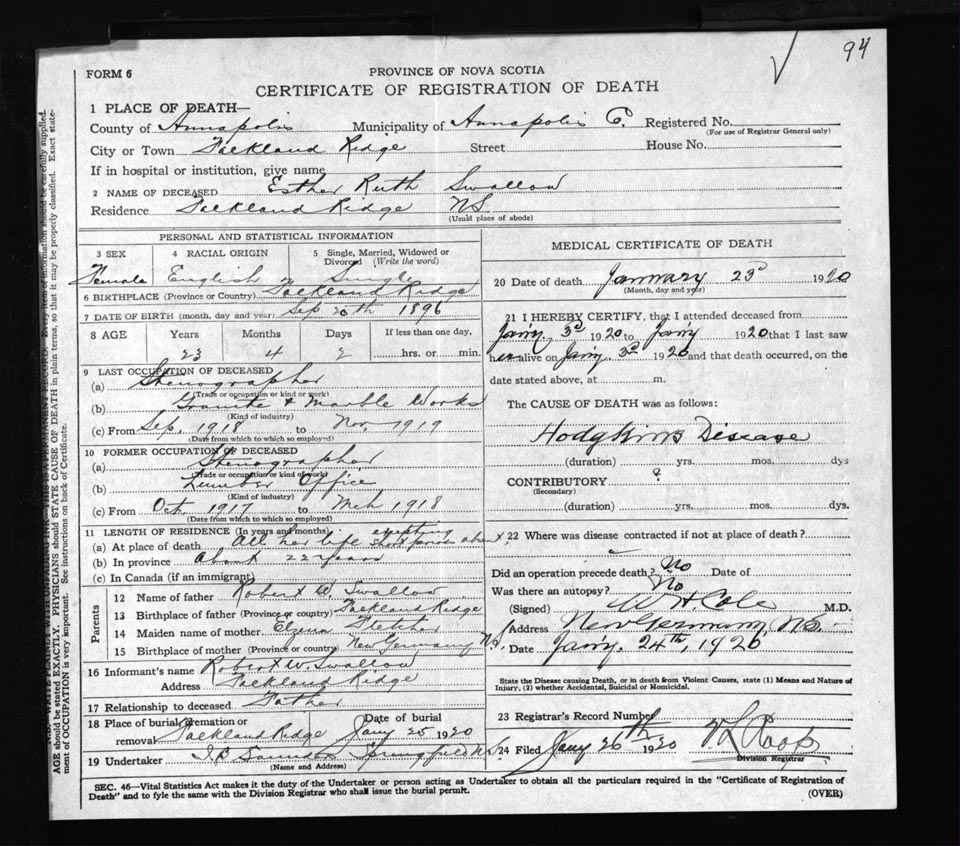 94
FORM 6
PROVINCE OF NOVA SCOTIA
CERTIFICATE OF REGISTRATION OF DEATH
1 PLACE OF DEATH—
County of Annapolis Municipality of Annapolis Co. Registered No.
(For use of Registrar General only)
City or Town Falkland Ridge Street House No.
If in hospital or institution, give name
2 NAME OF DECEASED Esther Ruth Swallow
Residence Falkland Ridge NS.
(Usual place of abode)
PERSONAL AND STATISTICAL INFORMATION
3 SEX 4 RACIAL ORIGIN 5 Single, Married, Widowed or Divorced (Write the word)
Female English Single
6 BIRTHPLACE (Province or Country) Falkland Ridge
7 DATE OF BIRTH (month, day and year) Sep 20th 1896
8 AGE Years Months Days If less than one day,
23 4 2 hrs. or min.
9 LAST OCCUPATION OF DECEASED
(a) Stenographer
(Trade or occupation or kind or work)
(b) Granite & Marble Works
(Kind of industry)
(c) From Sep. 1918 to Nov. 1919
(Date from which to which so employed)
10 FORMER OCCUPATION OF DECEASED
(a) Stenographer
(Trade or occupation or kind of work)
(b) Lumber Office
(Kind of industry)
(c) From Oct. 1917 to Mch 1918
(Date from which to which so employed)
11 LENGTH OF RESIDENCE (In years and months)
(a) At place of death All her life excepting short periods absent
(b) In province About 22 years
(c) In Canada (if an immigrant)
Parents
12 Name of father Robert W. Swallow
13 Birthplace of father (Province or country) Falkland Ridge
14 Maiden name of mother Fletcher
15 Birthplace of mother (Province or country) New Germany N.S.
16 Informant's name Robert W. Swallow
Address Falkland Ridge
17 Relationship to deceased Father
18 Place of burial, cremation or removal Falkland Ridge Date of burial Jany 25 1920
19 Undertaker Springfield N.S.
(Name and Address)
MEDICAL CERTIFICATE OF DEATH
20 Date of death January 23d 1920
(Month, day and year)
21 I HEREBY CERTIFY, that I attended deceased from
Jany. 3rd 1920 to Jany 1920 that I last saw
her alive on Jany. 3rd 1920 and that death occurred, on the
date stated above, at m.
The CAUSE OF DEATH was as follows:
Hodgkins Disease
(duration) yrs. mos. dys
CONTRIBUTORY ?
(Secondary)
(duration) yrs. mos. dys.
22 Where was disease contracted if not at place of death?
Did an operation precede death? No Date of
Was there an autopsy? No
(Signed) W H Cole M.D.
Address New Germany, N.S.
Date Jany. 24th, 1920
State the Disease causing Death, or in death from Violent Causes, state (1) Means and Nature of
Injury, (2) whether Accidental, Suicidal or Homicidal.
23 Registrar's Record Number
24 Filed Jany 26th 1920
Division Registrar
SEC. 46—Vital Statistics Act makes it the duty of the Undertaker or person acting as Undertaker to obtain all the particulars required in the "Certificate of Registration of
Death" and to fyle the same with the Division Registrar who shall issue the burial permit.
(OVER)
AGE should be stated EXACTLY. PHYSICIANS should STATE CAUSE OF DEATH in plain terms, so that it may be properly classified. Exact state-
ment of OCCUPATION is very important. See instructions on back of Certificate.